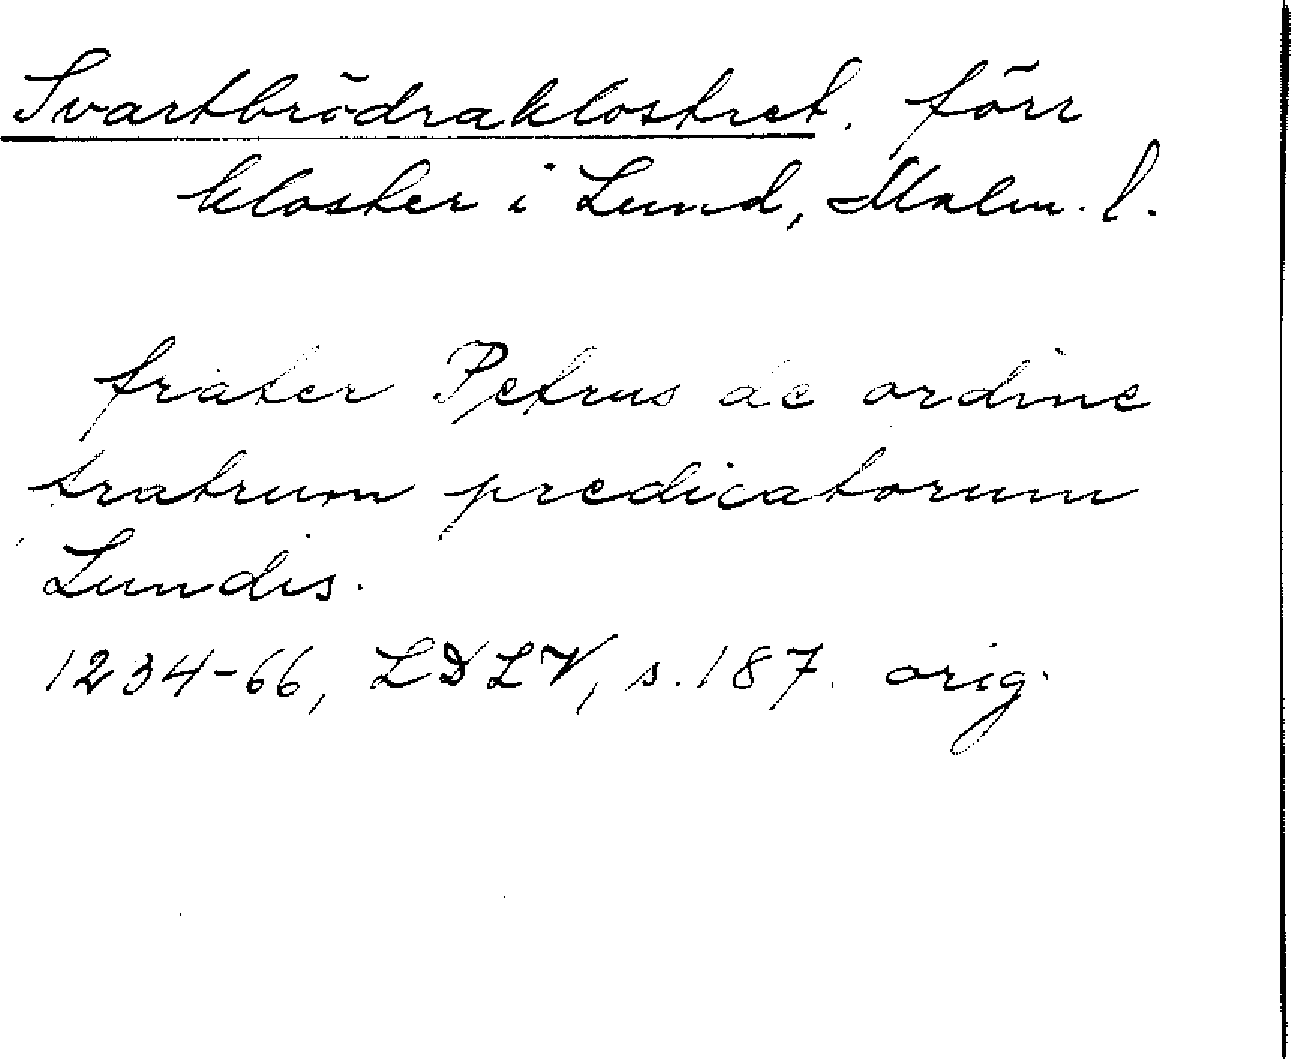 Svartbrödraklostret. förr
kloster i Lund, Malm. l.
frater Petrus de ordine
fratrum predicatorum
Lundis.
1234-66, LDLV, s. 187. orig.